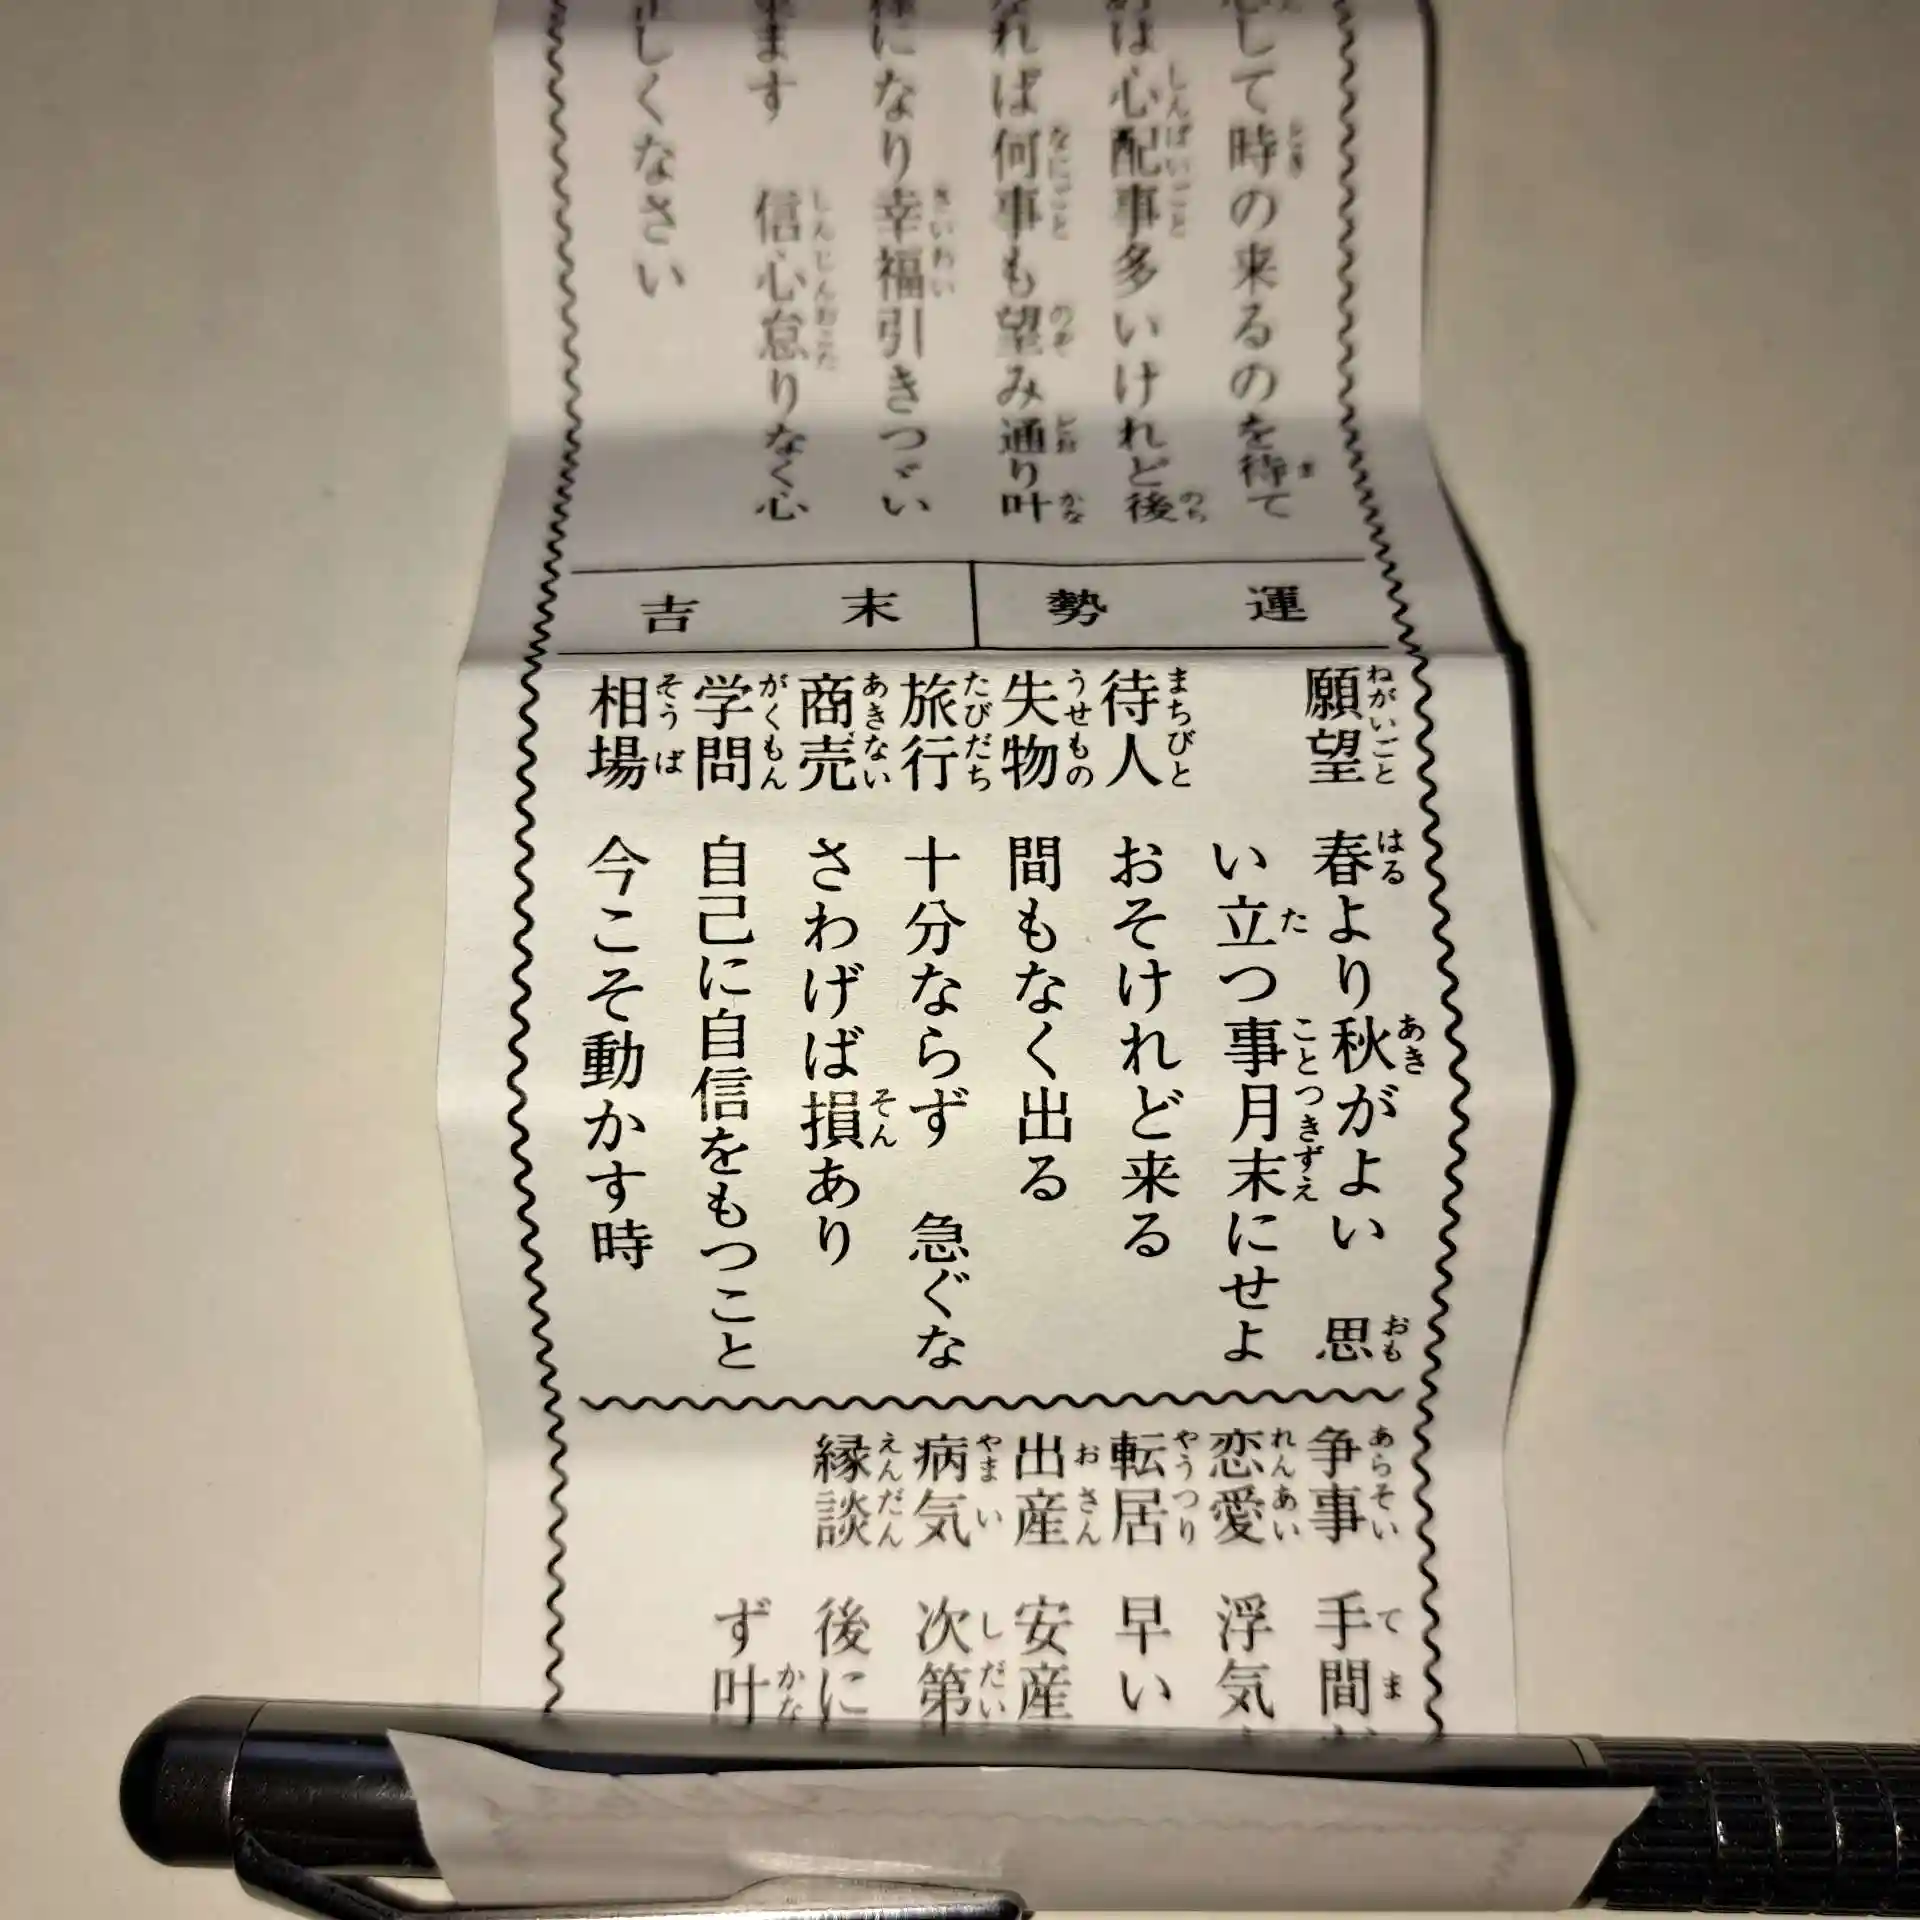 して時の来るのを待て
は心配事多いけれど後
れば何事も望み通り叶
になり幸福引きつゞい
ます　信心怠りなく心
しくなさい
運勢　末吉
願望　春よりも秋がよい　思
い立つ事月末にせよ
待人　おそけれど来る
失物　間もなく出る
旅行　十分ならず　急ぐな
商売　さわげば損あり
学問　自己に自信をもつこと
相場　今こそ動かす時
争事　手間
恋愛　浮気
転居　早い
出産　安産
病気　次第
縁談　後に
ず叶